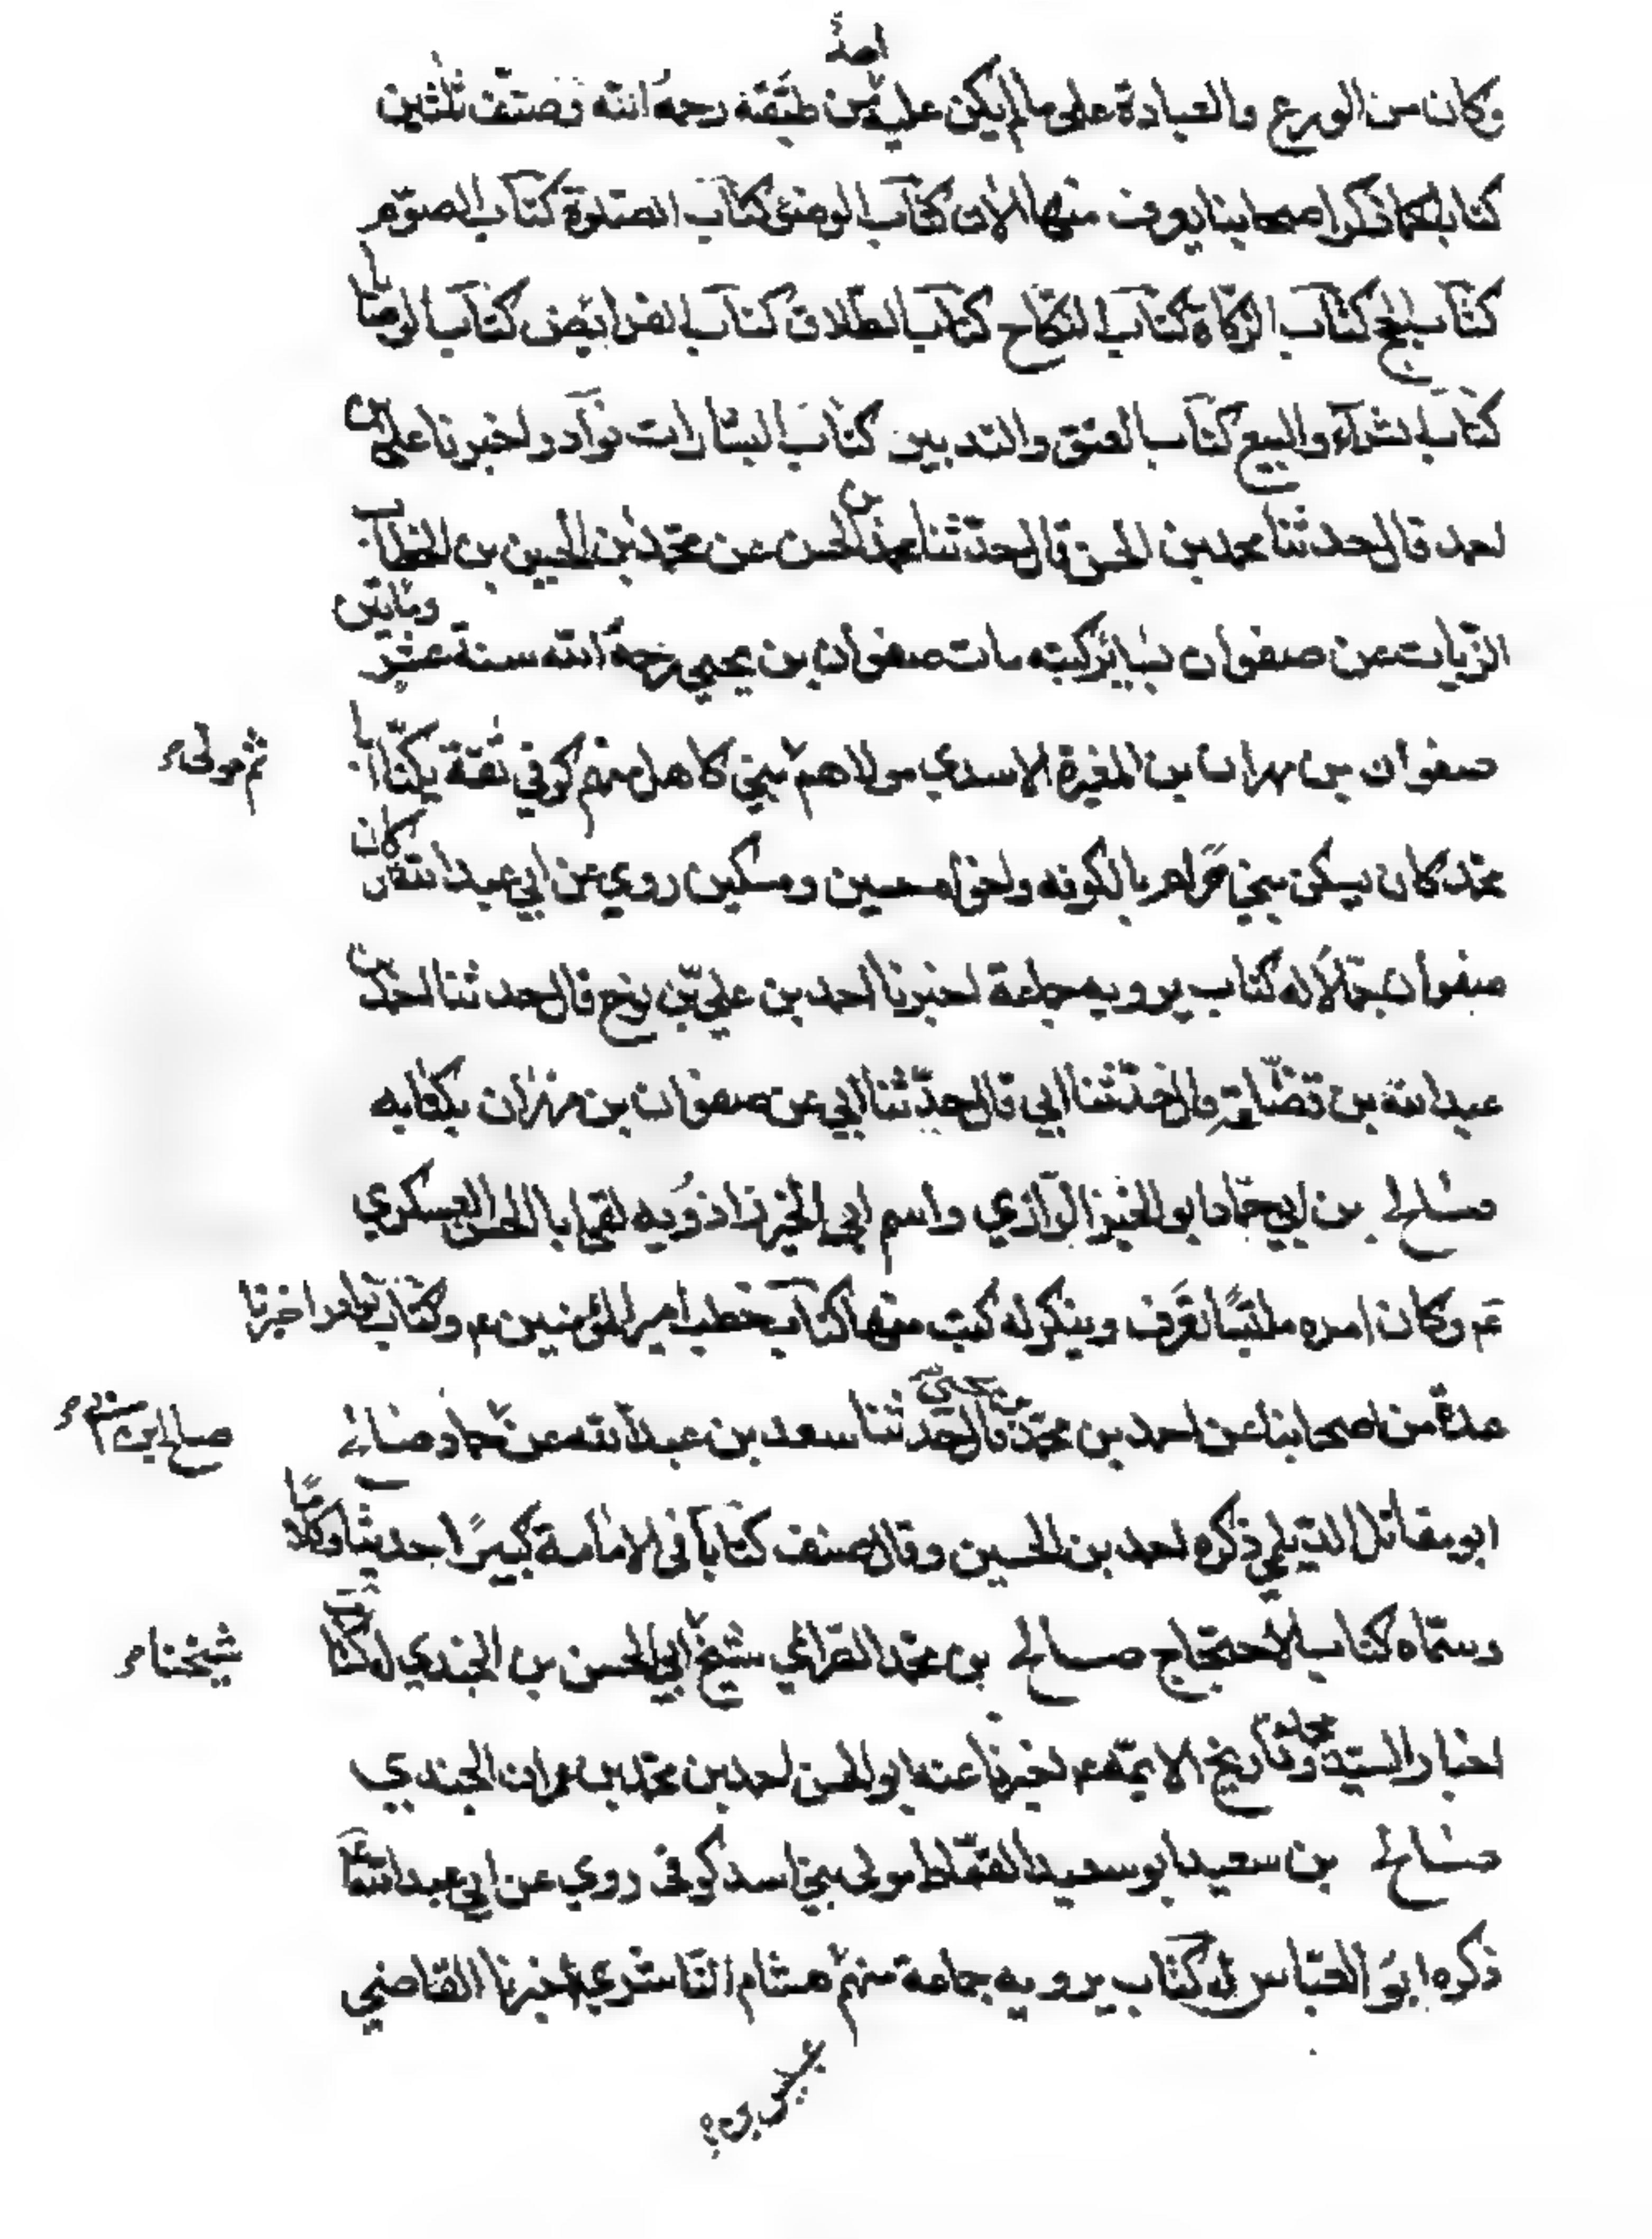 احدٌ
وكان من الورع والعبادة على ما لم يكن عليه من طبقته رحمه الله وصنّف ثلثين
كتابا كما ذكر اصحابنا يعرف منها الان كتاب الوضوء كتاب الصلوة كتاب الصوم
كتاب الحج كتاب الزكاة كتاب النكاح كتاب الطلاق كتاب الفرائض كتاب الوصايا
كتاب الشرآء والبيع كتاب العتق والتدبير كتاب البشارات نوادر اخبرنا علي بن
احمد قال حدثنا محمد بن الحسن قال حدّثنا محمد بن الحسن عن محمّد بن الحسين بن الخطاب
الزيات عن صفوان بسائر كتبه مات صفوان بن يحيى رحمه الله سنة عشر ومائتين
صفوان بن مهران بن المغيرة الاسدي مولاهم بني كاهل منهم كوفي ثقة يكنّا ابا
ثم مولى
محمّد كان يسكن بني حرام بالكوفه واخواه حسين ومسكين روى عن ابي عبد الله ع وكان
صفوان جمّالا له كتاب يرويه جماعة اخبرنا احمد بن علي بن نوح قال حدثنا احمد بن
عبد الله بن قضاعة قال حدّثنا ابي قال حدّثنا ابي عن صفوان بن مهران بكتابه
صالح بن ابي حمّاد ابو الخير الرازي واسم ابي الخير زاذويه لقي ابا الحسن العسكري
ع م وكان امره ملتبسًا تعرف وينكر له كتب منها كتاب خطب امير المؤمنين ع م وكتاب نوادر اخبرنا
عدة من اصحابنا عن احمد بن محمّد بن يحيى قال حدثنا سعد بن عبد الله عن حماد صالح
ابو مقاتل الديلمي ذكره احمد بن الحسين وقال صنف كتابا في الامامة كبيرًا حديثا وكلاما
وسمّاه كتاب الاحتجاج صالح بن محمّد الصرامي شيخ ابي الحسن بن الجندي له كتاب
شيخنا
اخبار السيّد وتاريخ الايمّة ع م اخبرنا عنه ابو الحسن احمد بن محمّد بن عمران الجندي
صالح بن سعيد ابو سعيد القمّاط مولى بني اسد كوفى روى عن ابي عبد الله ع م
ذكره ابو العبّاس له كتاب يرويه جماعة منهم عبيس بن هشام الناشري اخبرنا القاضي
عبيس بن